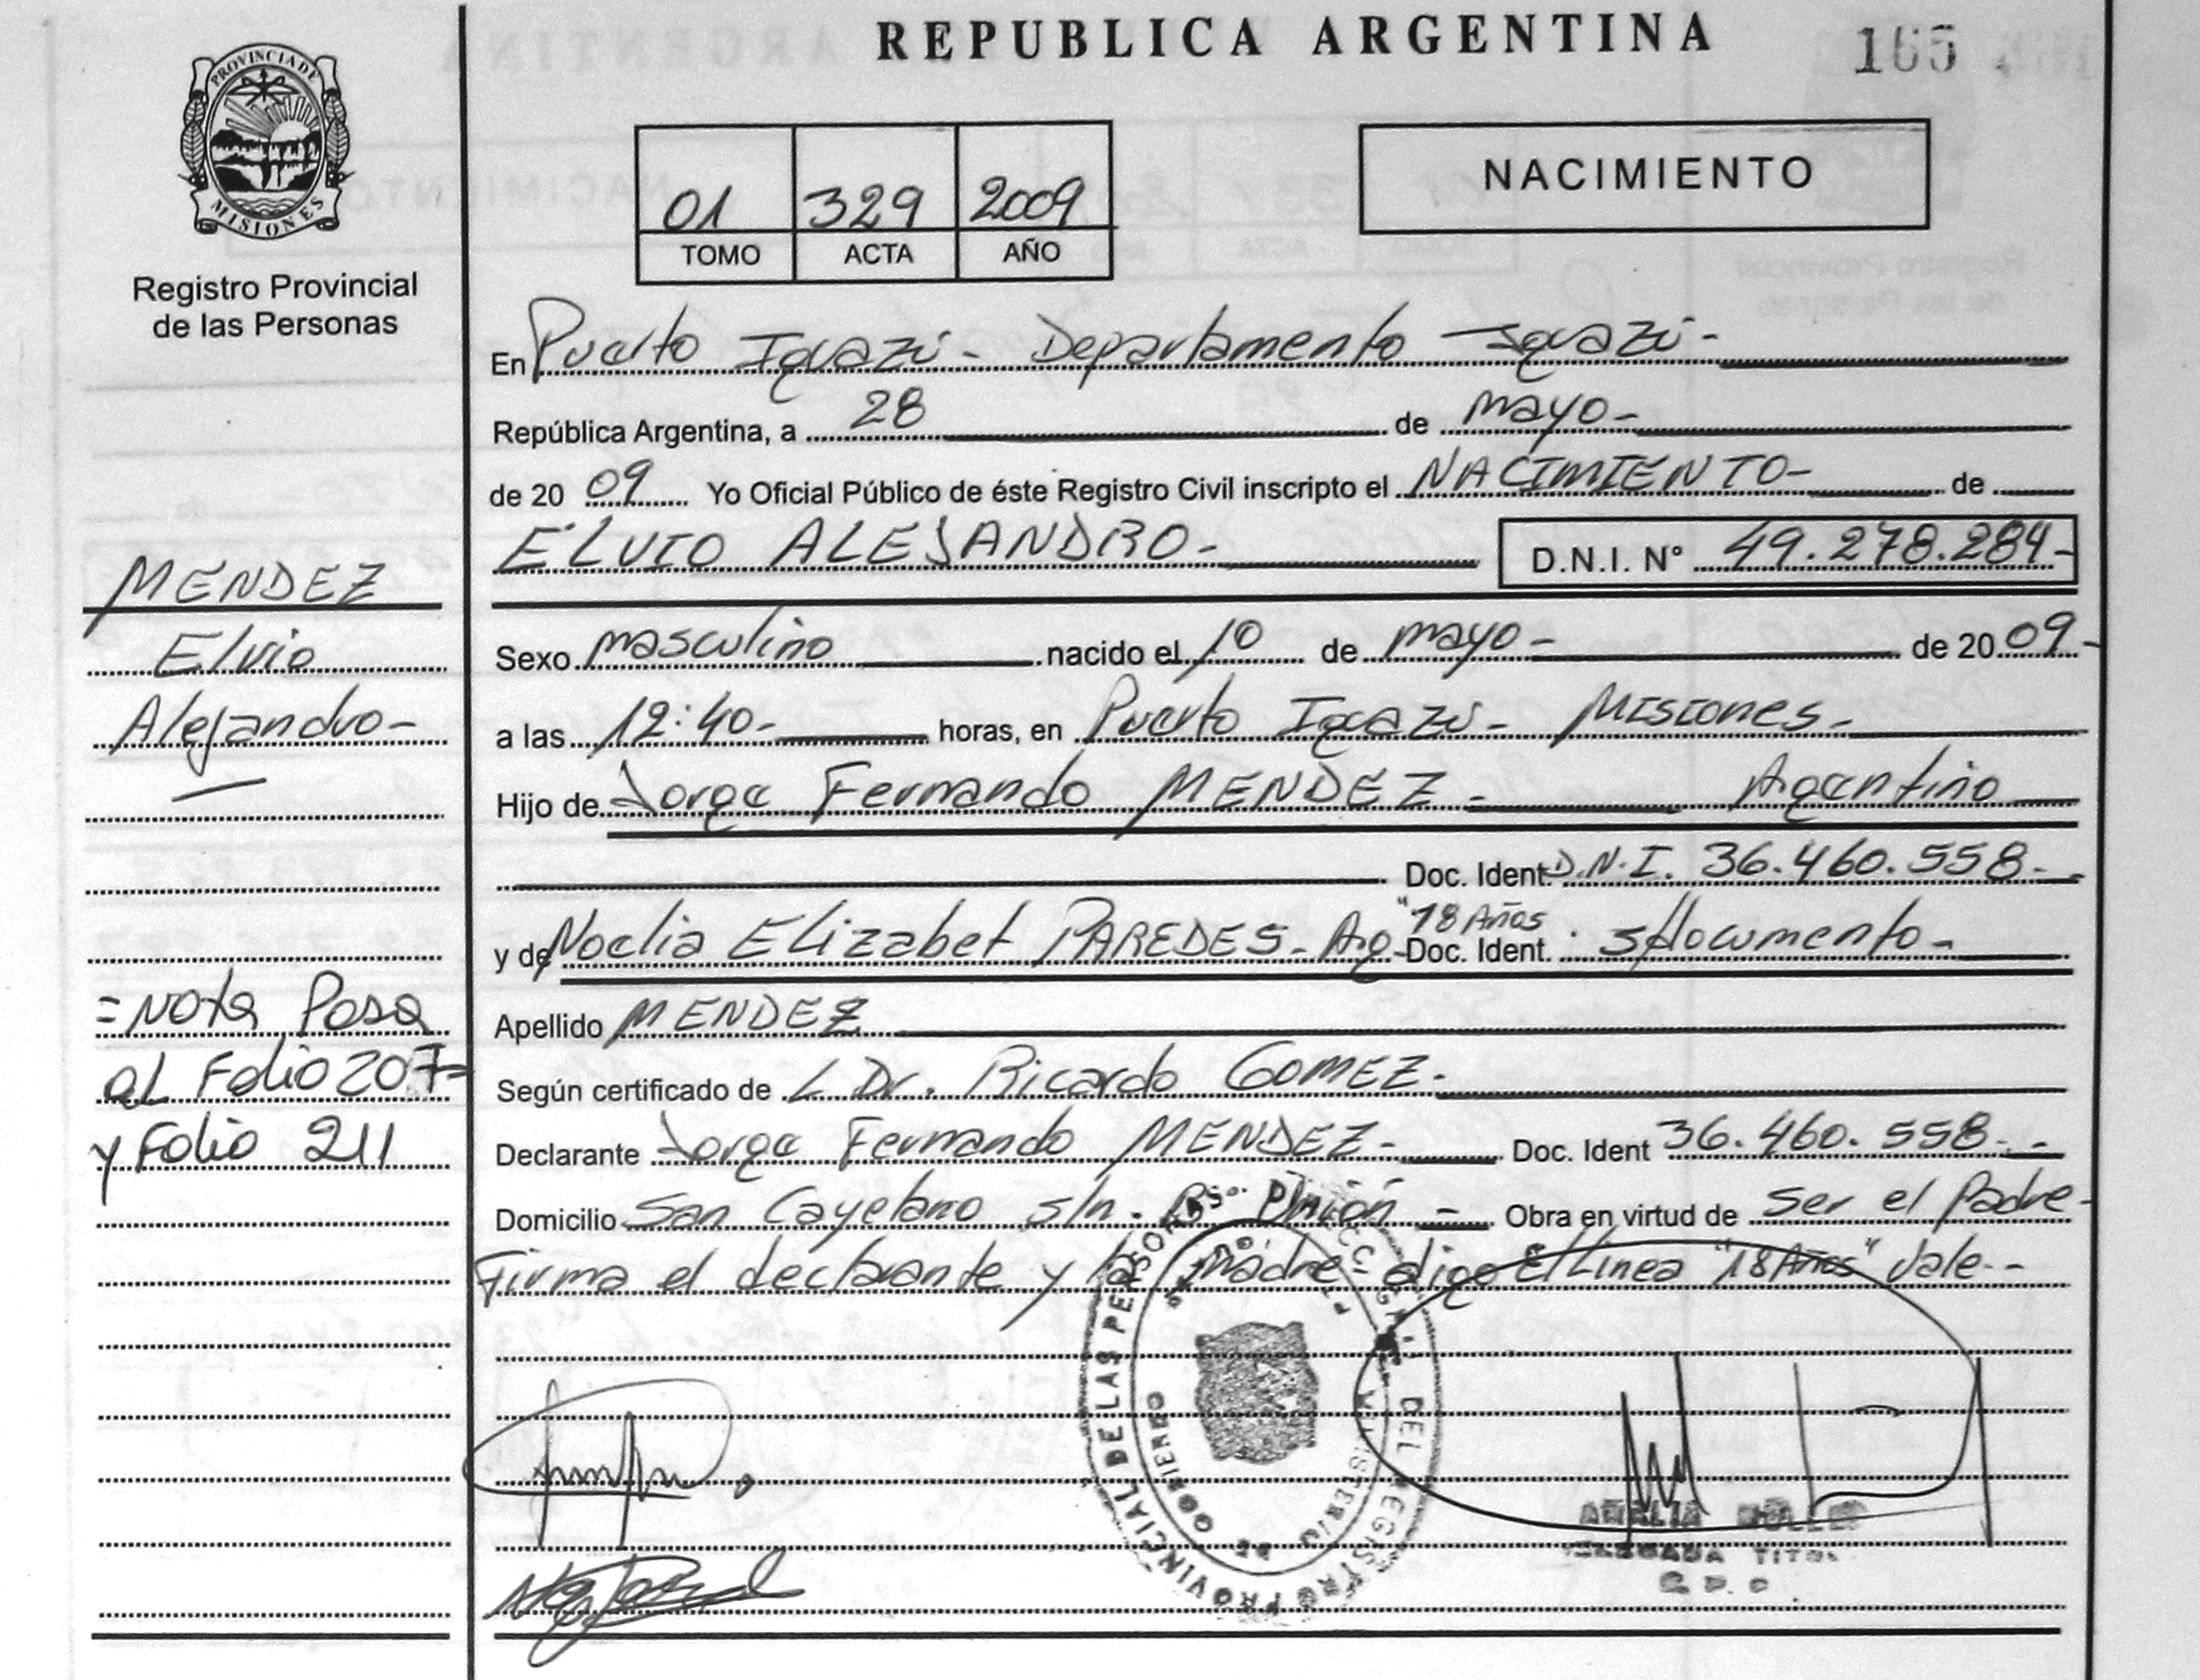 REPUBLICA ARGENTINA
165
PROVINCIA DE
MISIONES
Registro Provincial
de las Personas
01 329 2009
TOMO ACTA AÑO
NACIMIENTO
En Puerto Iguazú - Departamento Iguazú -
República Argentina, a 28 de mayo -
de 20 09 Yo Oficial Público de éste Registro Civil inscripto el NACIMIENTO - de
ELVIO ALEJANDRO - D.N.I. N° 49.278.284 -
MENDEZ
Elvio
Alejandro -
Sexo masculino nacido el 10 de mayo - de 20 09 -
a las 12:40 - horas, en Puerto Iguazú - Misiones -
Hijo de Jorge Fernando MENDEZ - Argentino
Doc. Ident. D.N.I. 36.460.558 -
"18 Años
y de Noelia Elizabet PAREDES - Arg - Doc. Ident. s/documento -
= Nota Pasa
al Folio 207 -
y Folio 211
Apellido MENDEZ
Según certificado de L Dr. Ricardo GOMEZ -
Declarante Jorge Fernando MENDEZ - Doc. Ident 36.460.558 -
Domicilio San Cayetano s/n. B° Unión - Obra en virtud de ser el padre -
Firma el declarante y la madre - digo E/Linea "18 Años" Vale - -
DEL REGISTRO PROVINCIAL DE LAS PERSONAS
MINISTERIO DE GOBIERNO